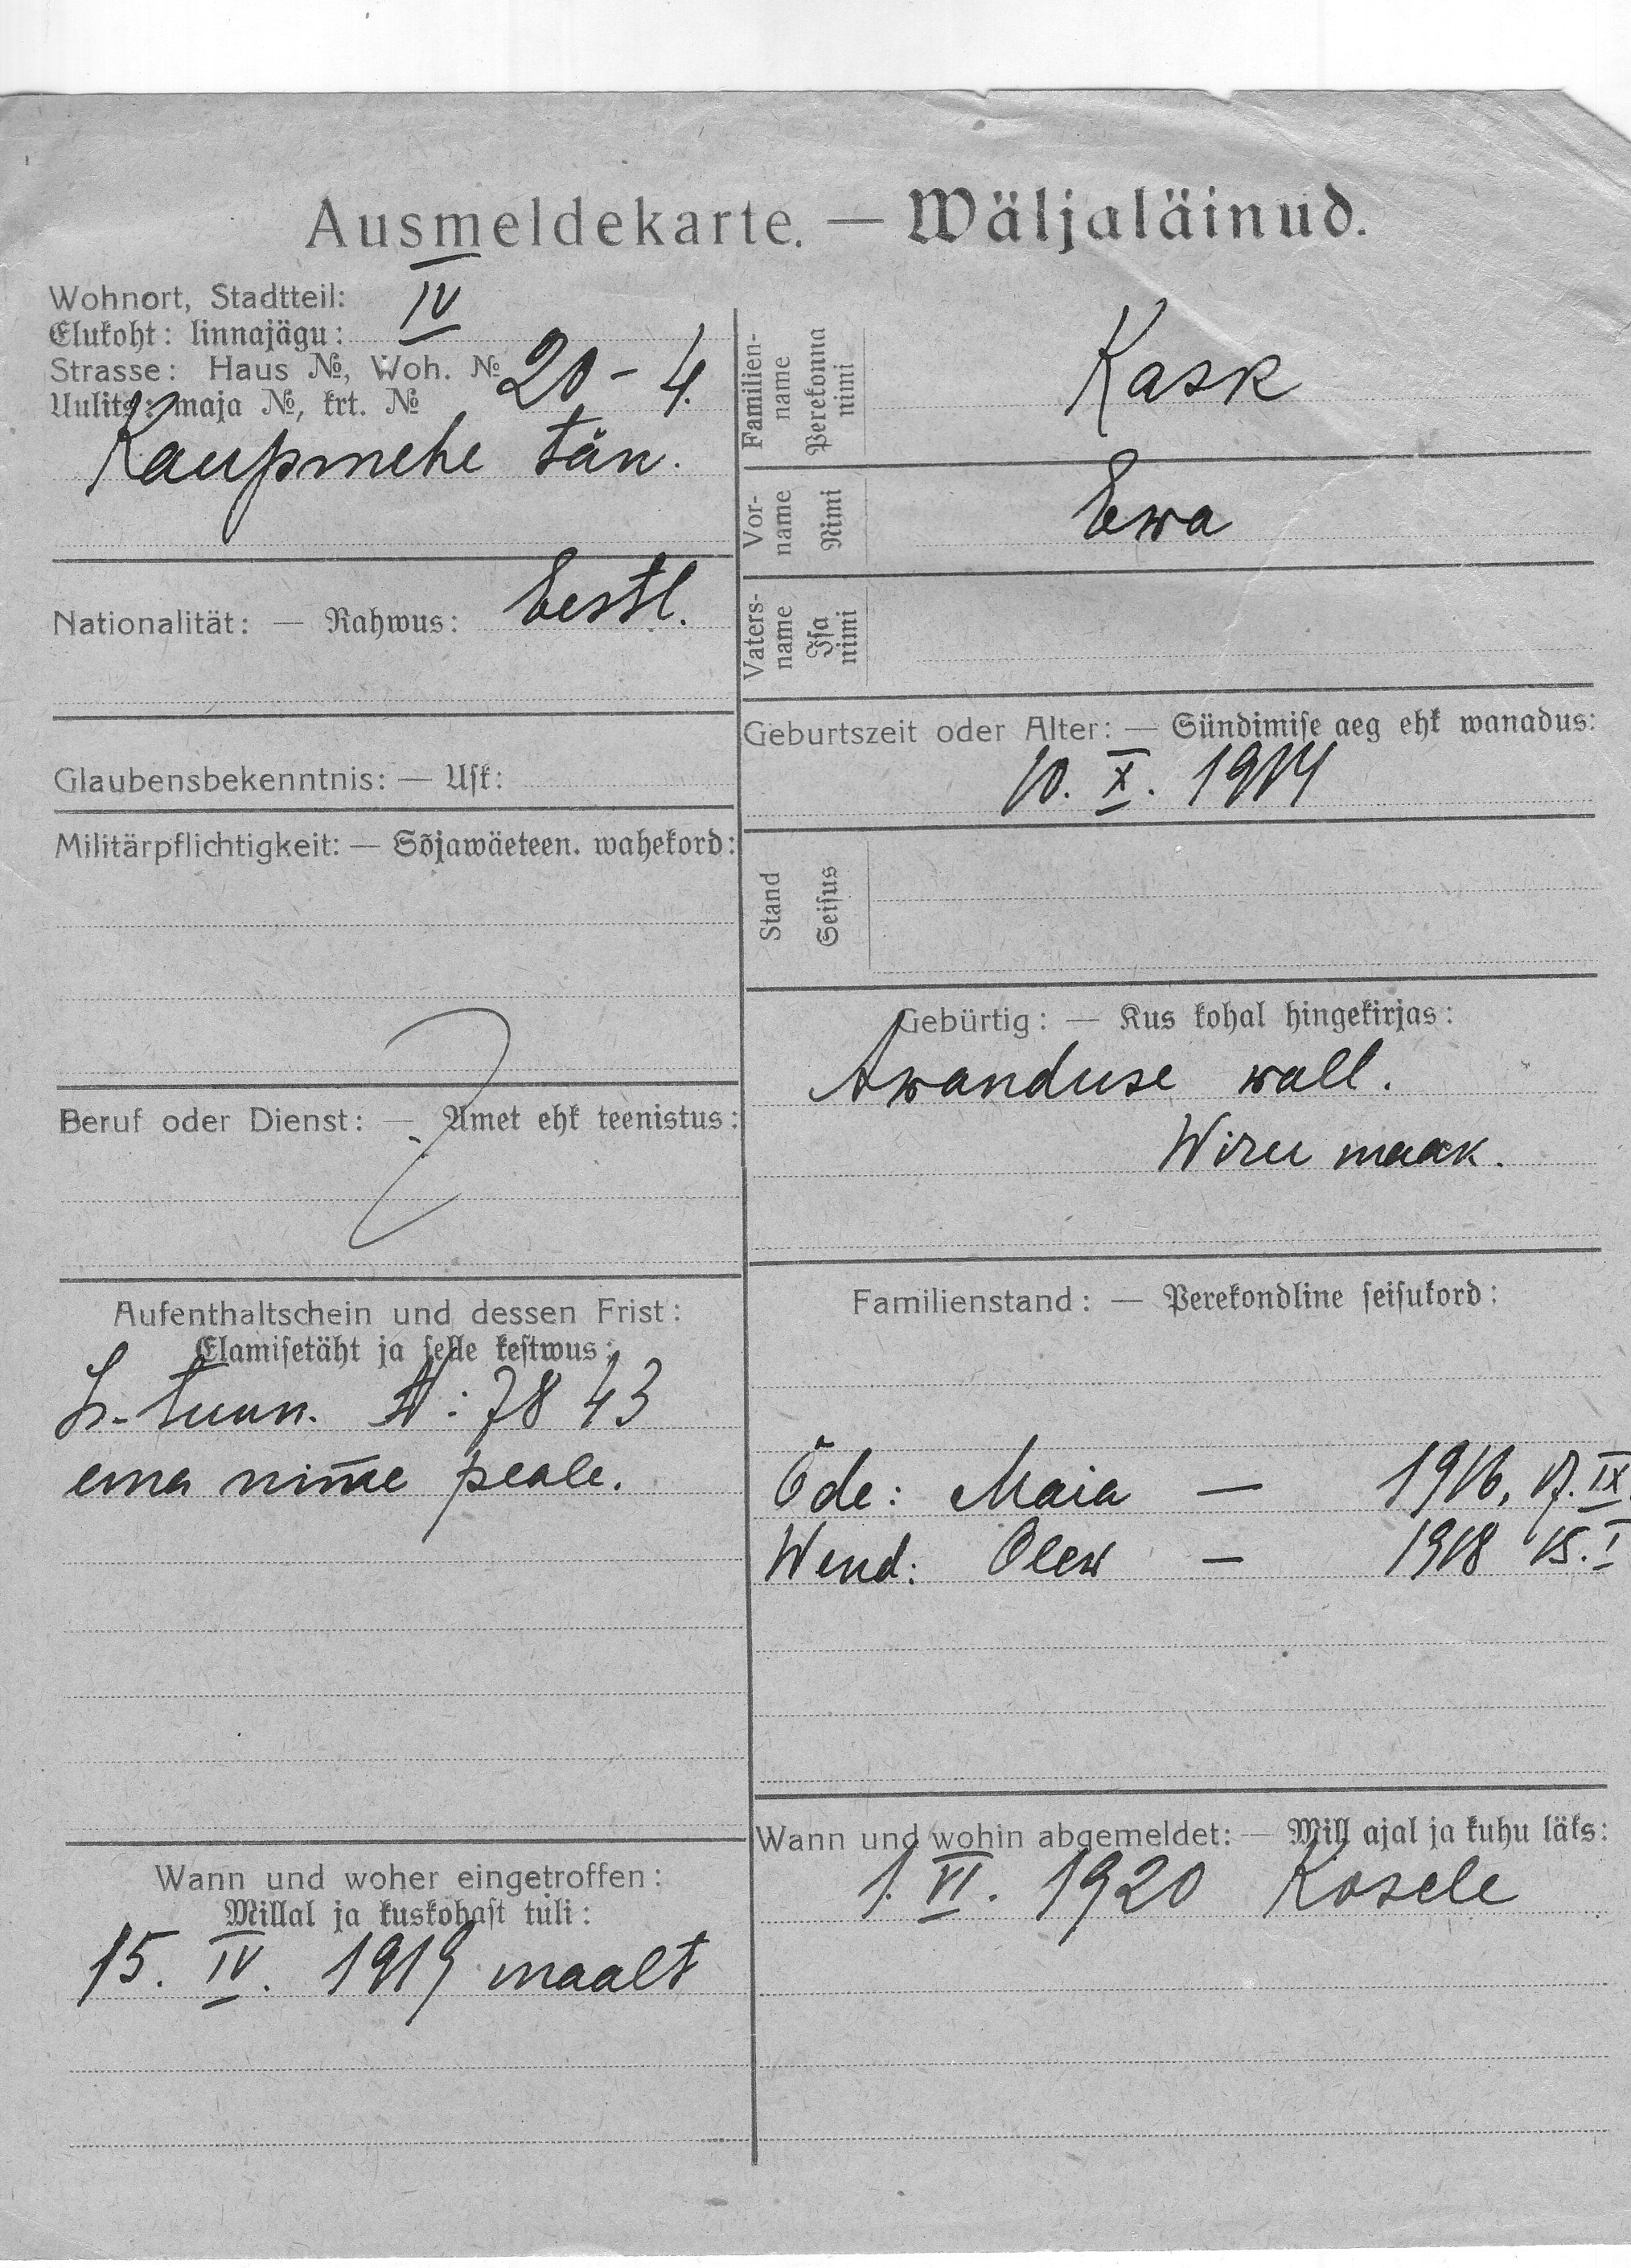 Ausmeldekarte. — Wäljaläinud.
Wohnort, Stadtteil:
Elukoht: linnajägu: IV
Strasse: Haus №, Woh. № 20 - 4.
Uulits: maja №, krt. №
Kaupmehe tän.
Nationalität: — Rahwus: Eestl.
Glaubensbekenntnis: — Usk:
Militärpflichtigkeit: — Sõjawäeteen. wahekord:
Beruf oder Dienst: — Amet ehk teenistus:
Aufenthaltschein und dessen Frist:
Elamisetäht ja selle kestwus:
tunn. №: 78 43
ema nim̄e peale.
Wann und woher eingetroffen:
Millal ja kuskohast tuli:
15. IV. 1919 maalt
Familien-
name
Perekonna
nimi
Kask
Vor-
name
Nimi
Ewa
Vaters-
name
Isa
nimi
Geburtszeit oder Alter: — Sündimise aeg ehk wanadus:
10. X. 1914
Stand
Seisus
Gebürtig: — Kus kohal hingekirjas:
Awanduse wall.
Wiru maak.
Familienstand: — Perekondline seisukord:
Õde: Maia — 1916, 17. IX.
Wend: Olew — 1918 15. I
Wann und wohin abgemeldet: — Mill ajal ja kuhu läks:
1. VI. 1920 Kosele